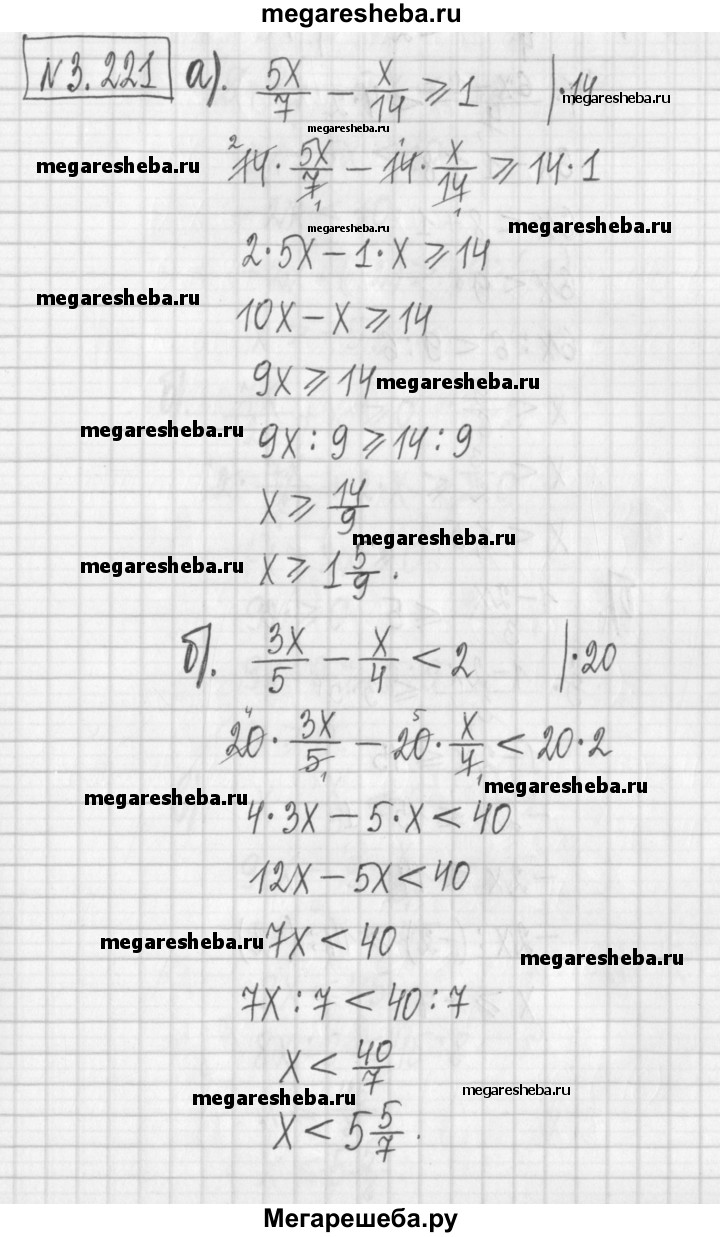 megaresheba.ru
N3.221 а). 5x/7 − x/14 ⩾ 1 |·14 megaresheba.ru
megaresheba.ru
megaresheba.ru 2 14·5x/7 1 − 14·x/14 1 1 ⩾ 14·1
megaresheba.ru megaresheba.ru
2·5x − 1·x ⩾ 14
megaresheba.ru 10x − x ⩾ 14
9x ⩾ 14 megaresheba.ru
megaresheba.ru 9x : 9 ⩾ 14 : 9
x ⩾ 14/9
megaresheba.ru
megaresheba.ru x ⩾ 1 5/9.
б). 3x/5 − x/4 < 2 |·20
4 20·3x/5 1 − 5 20·x/4 1 < 20·2
megaresheba.ru
megaresheba.ru 4·3x − 5·x < 40
12x − 5x < 40
megaresheba.ru 7x < 40
megaresheba.ru
7x : 7 < 40 : 7
x < 40/7
megaresheba.ru megaresheba.ru
x < 5 5/7.
Мегарешеба.ру